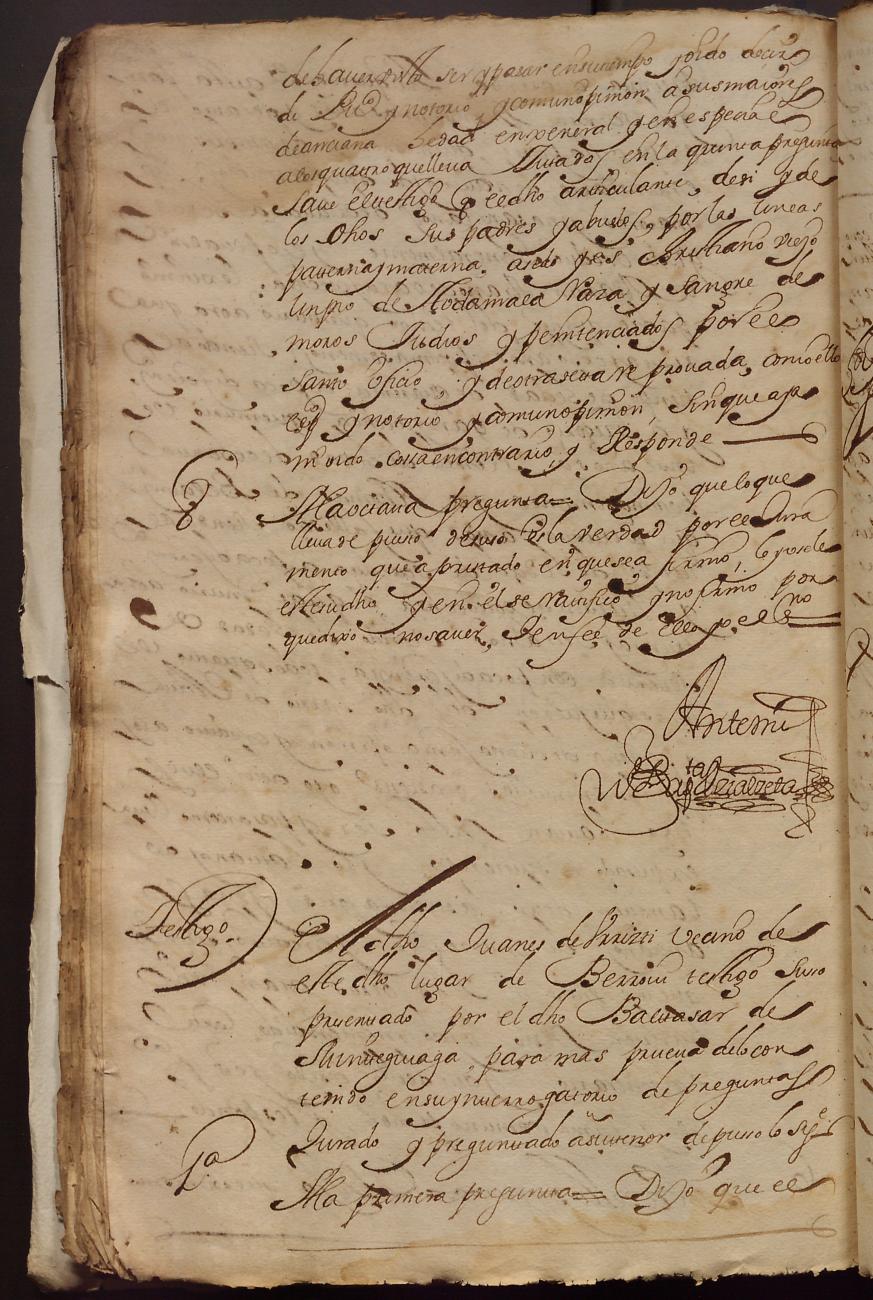 de haver visto ser y pasar en su tiempo y oido decir
de puco y notorio y comun opinion a sus maiores
de anciana hedad en general y en especial
a los quatro que lleva citados en la quinta pregunta
save el testigo q el dho articulante, de si y de
los dhos sus padres y abuelos, por las lineas
paterna y materna. a sido y es christiano viejo
limpio de toda mala raza y sangre de
moros Judios y penitenciados por el
santo oficio y de otra seta re provada, como ello
es y notorio y comun opinion, sin que aya
avido cossa en contrario, y Responde
8 A la octava pregunta = Dijo que lo que
lleva de puesto de suso es la verdad por el Jura
mento que a prestado en que se a firmo, leyosele
este su dho y en el se ratifico y no firmo por
que dijo no saver, Ien fee de ello yo el s.no =
Antemi
Testigo
El dho Juanes de vecino de
este dho lugar de testigo
presentado por el dho Baltasar de
para mas prueva de lo con
tenido en su ynterrogatorio de preguntas
Jurado y preguntado a su tenor depuso lo sigte
1a A la primera pregunta = Dijo que el